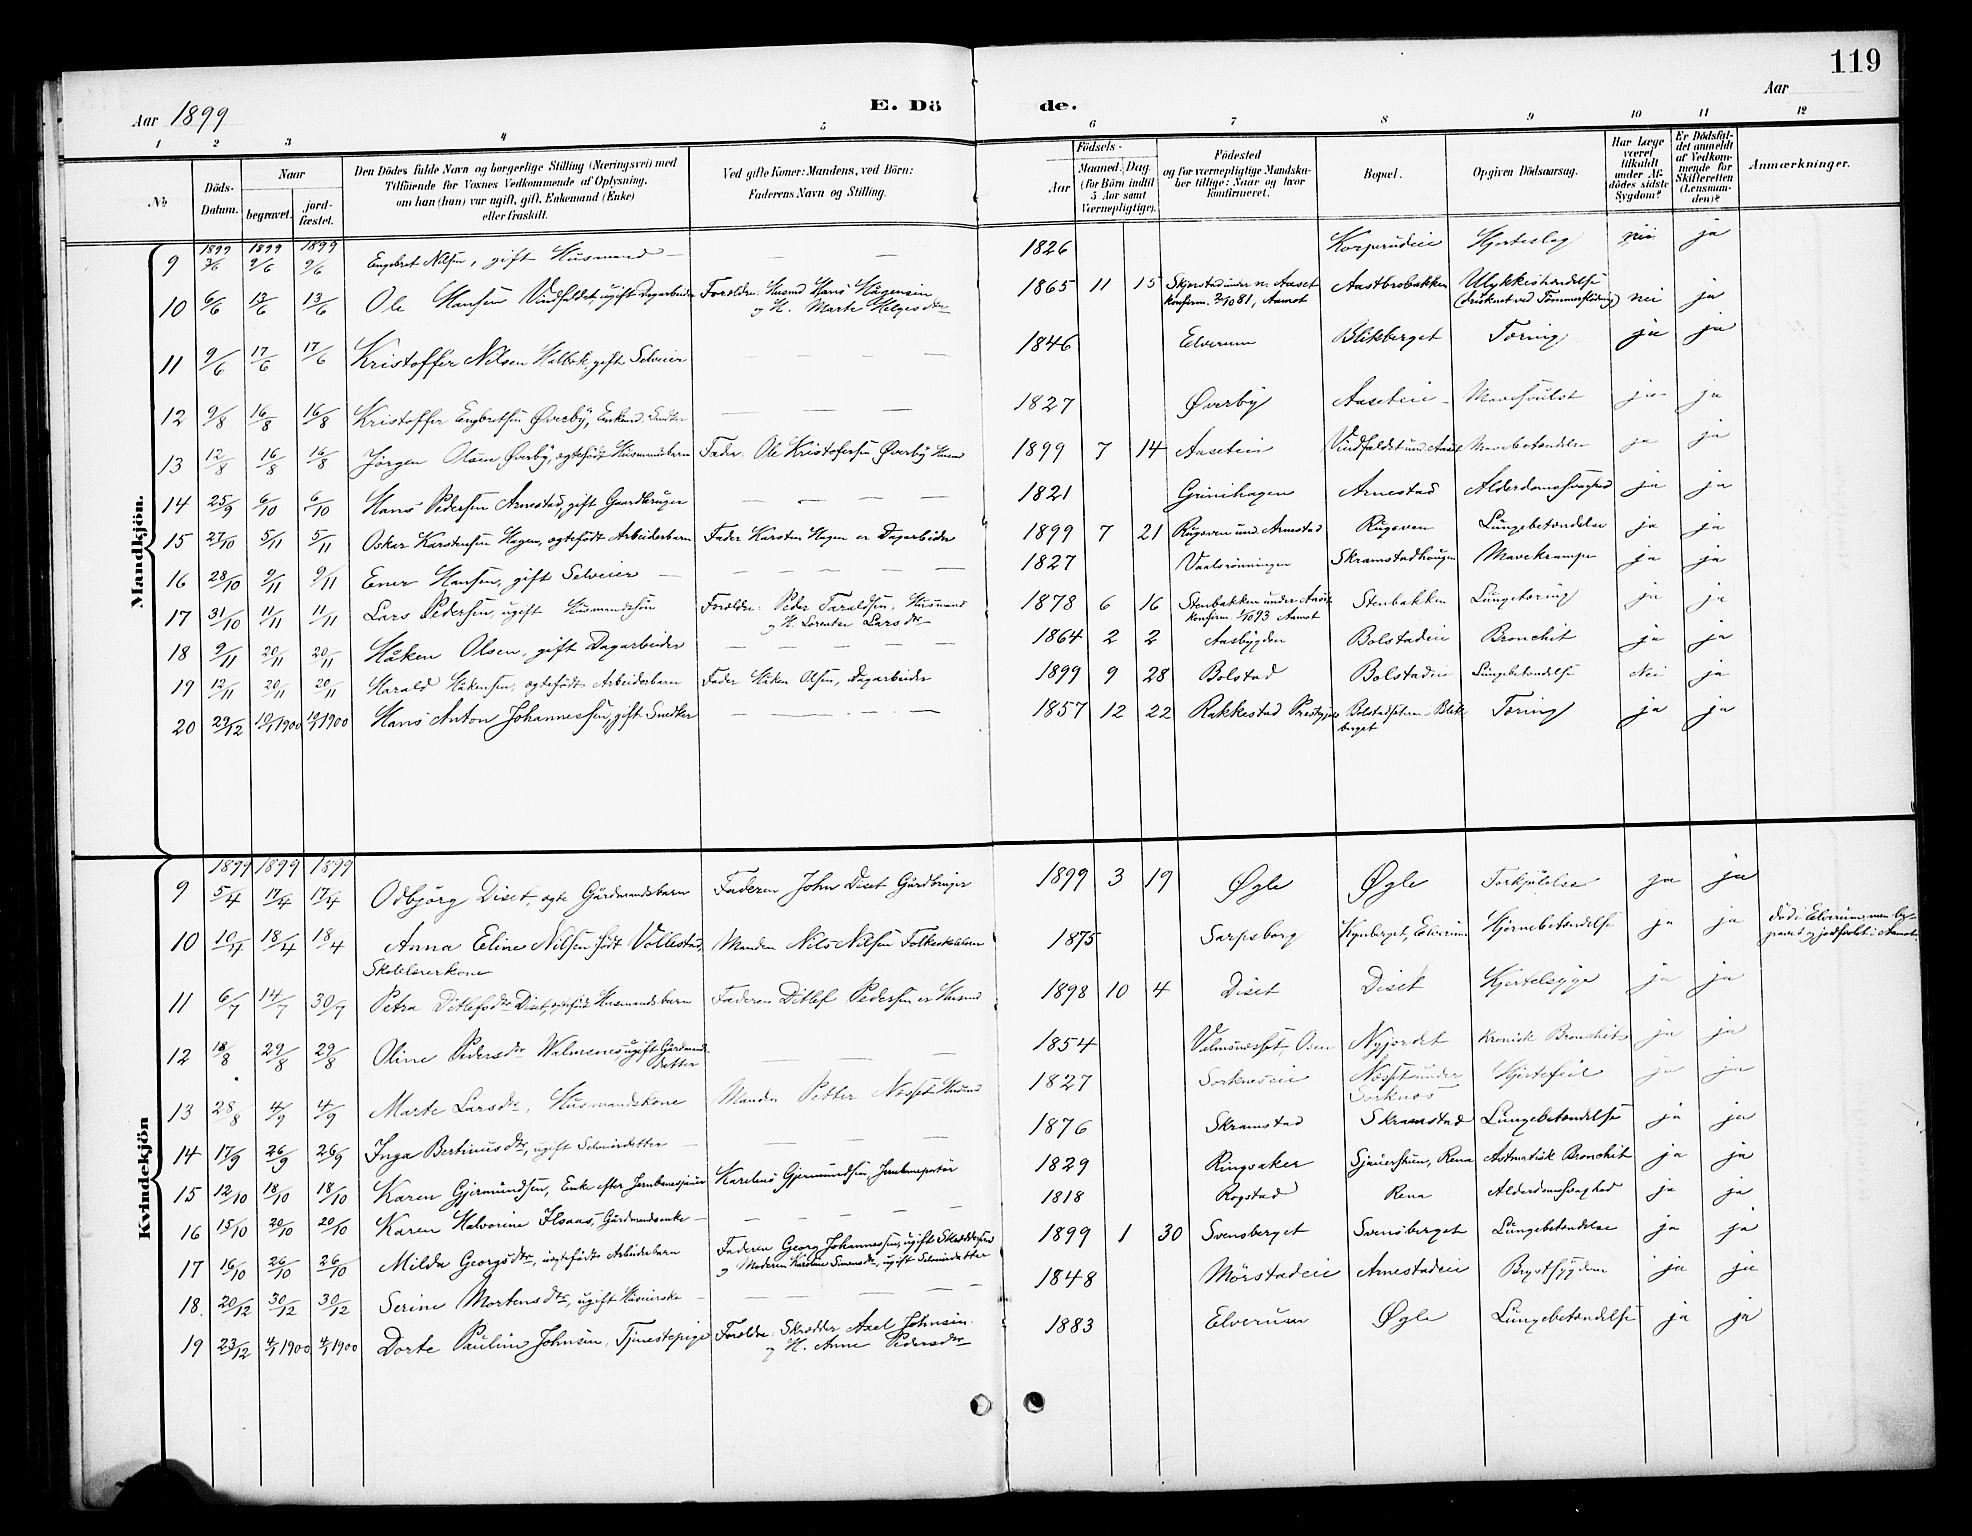 119
Aar 1899
E. Dö
de.
Aar
1 2 3 4 5 6 7 8 9 10 11 12
№
Döds-Datum.
Naar
begravet.
jord-fæstet.
Den Dödes fulde Navn og borgerlige Stilling (Næringsvei) med
Tilföiende for Voxnes Vedkommende af Oplysning,
om han (hun) var ugift, gift, Enkemand (Enke)
eller fraskilt.
Ved gifte Koner: Mandens, ved Börn:
Faderens Navn og Stilling.
Födsels-
Aar
Maaned. Dag.
(for Börn indtil
5 Aar samt
Værnepligtige).
Födested
og for værnepligtige Mandska-
ber tillige: Naar og hvor
konfirmeret.
Bopæl.
Opgiven Dödsaarsag.
Har Læge
været
tilkaldt
under Af-
dödes sidste
Sygdom?
Er Dödsfal-
det anmeldt
af Vedkom-
mende for
Skifteretten
(Lensman-
den)?
Anmærkninger.
Mandkjön.
1899 1899 1899
9 3/6 9/6 9/6 Engebret Nilsen, gift Husmand — — — 1826 Korprudeie Hjerteslag nei ja
10 6/6 13/6 13/6 Ole Hansen Vindfaldet, ugift Dagarbeider Forældre: Husmd Hans Hågensen 1865 11 15 Skjerstad under n. Aaset Aastbrobakken Ulykkeshændelse
og H. Marte Helgesdtr konfirm. 2/10 81, Aamot (druknet ved Tømmerflödning) nei ja
11 9/6 17/6 17/6 Kristoffer Nilsen Holbæk, gift Selveier — — — 1846 Elverum Blikberget Tæring ja ja
12 9/8 16/8 16/8 Kristoffer Engebretsen Øverby, Enkemd — — — 1827 Øverby Aaseteie Mavesvulst ja ja
13 12/8 16/8 16/8 Jörgen Olsen Øverby, ægtefödt Husmandsbarn Fader: Ole Kristofersen Øverby Husmd 1899 7 14 Aaseteie Vindfaldet und. Aaset Mavebetændelse ja ja
14 25/9 6/10 6/10 Hans Pedersen Arnestad, gift Gaardbruger — — — 1821 Grinihagen Arnestad Alderdomssvaghed ja ja
15 27/10 5/11 5/11 Oskar Karstensen Hagen, ægtefödt Arbeiderbarn Fader Karsten Hagen er Dagarbeider 1899 7 21 Rugsven und. Arnestad Rugsven Lungebetændelse ja ja
16 28/10 9/11 9/11 Ener Hansen, gift Selveier — — — — 1827 Vaalsrönningen Skramstadhaugen Mavekrampe ja ja
17 31/10 11/11 11/11 Lars Pedersen, ugift Husmandssön Forældre: Peder Taraldsen, Husmand 1878 6 16 Stenbakken under Stenbakken Lungetæring ja ja
og H. Lorentse Larsdtr konfirm. 1/10 93 Aamot
18 9/11 20/11 20/11 Håken Olsen, gift Dagarbeider — — — — — 1864 2 2 Aasbygden Bolstadeie Bronchit ja ja
19 12/11 20/11 20/11 Harald Håkensen, ægtefödt Arbeiderbarn Fader Håken Olsen, Dagarbeider 1899 9 28 Bolstad Bolstadeie Lungebetændelse Nei ja
20 29/12 10/1 1900 10/1 1900 Hans Anton Johannessen, gift Snedker — — — 1857 12 22 Rakkestad Prestegjeld Bolstadsetern Blik- Tæring ja ja
berget
Kvindekjön
1899 1899 1899
9 5/4 17/4 17/4 Odbjörg Diset, ægte Gårdmandsbarn Faderen John Diset Gårdbruger 1899 3 19 Øgle Øgle Forkjölelse ja ja
10 10/4 18/4 18/4 Anna Eline Nilsen födt Vollestad, Manden Nils Nilsen 1875 Sarpsborg Kynberget, Elverum Hjernebetændelse ja ja död i Elverum, men be-
Skolelærerkone gravet og jordfæstet i Aamot
11 6/7 14/7 30/7 Petra Ditlefsdtr Diset, Husmandsbarn Faderen Ditlef Pedersen er Husmd 1898 10 4 Diset Diset Kjertelsyge ja ja
12 18/8 29/8 29/8 Oline Pedersdtr Walmsnes ugift Gårdmands- — — — 1854 Valmsnæsset, Osen Nyjordet Kronisk Bronchit ja ja
datter
13 28/8 4/9 4/9 Marte Larsdtr, Husmandskone Manden Petter Næsset Husmd 1827 Sorkneseie Næsset under Hjertefeil ja ja
Sorknæs
14 17/9 26/9 26/9 Inga Bertinusdtr, ugift Selveierdatter — — — 1876 Skramstad Skramstad Lungebetændelse ja ja
15 12/10 18/10 18/10 Karen Gjermundsen, Enke efter Karelius Gjermundsen 1829 Ringsaker Rena Astmatisk Bronchit ja ja
16 15/10 20/10 20/10 Karen Halvorine Ilsaas, Gårdmandsenke — — — — 1818 Rogstad Rena Alderdomsvaghed ja ja
17 16/10 26/10 26/10 Milda Georgsdtr, uægtefödt Arbeiderbarn Faderen Georg Johannessen, ugift 1899 1 30 Svensberget Svensberget Lungebetændelse ja ja
og Moderen Karoline Simensdtr, ugift Selveierdatter
18 20/12 30/12 30/12 Serine Mortensdtr, ugift — — — 1848 Mörstadeie Arnestadeie Brystsygdom ja ja
19 23/12 4/1 1900 4/1 1900 Dorte Pauline Johnsen, Tjenestepige Forældre: Skrædder Axel Johnsen 1883 Elverum Øgle Lungebetændelse ja ja
og H. Anne Pedersdtr